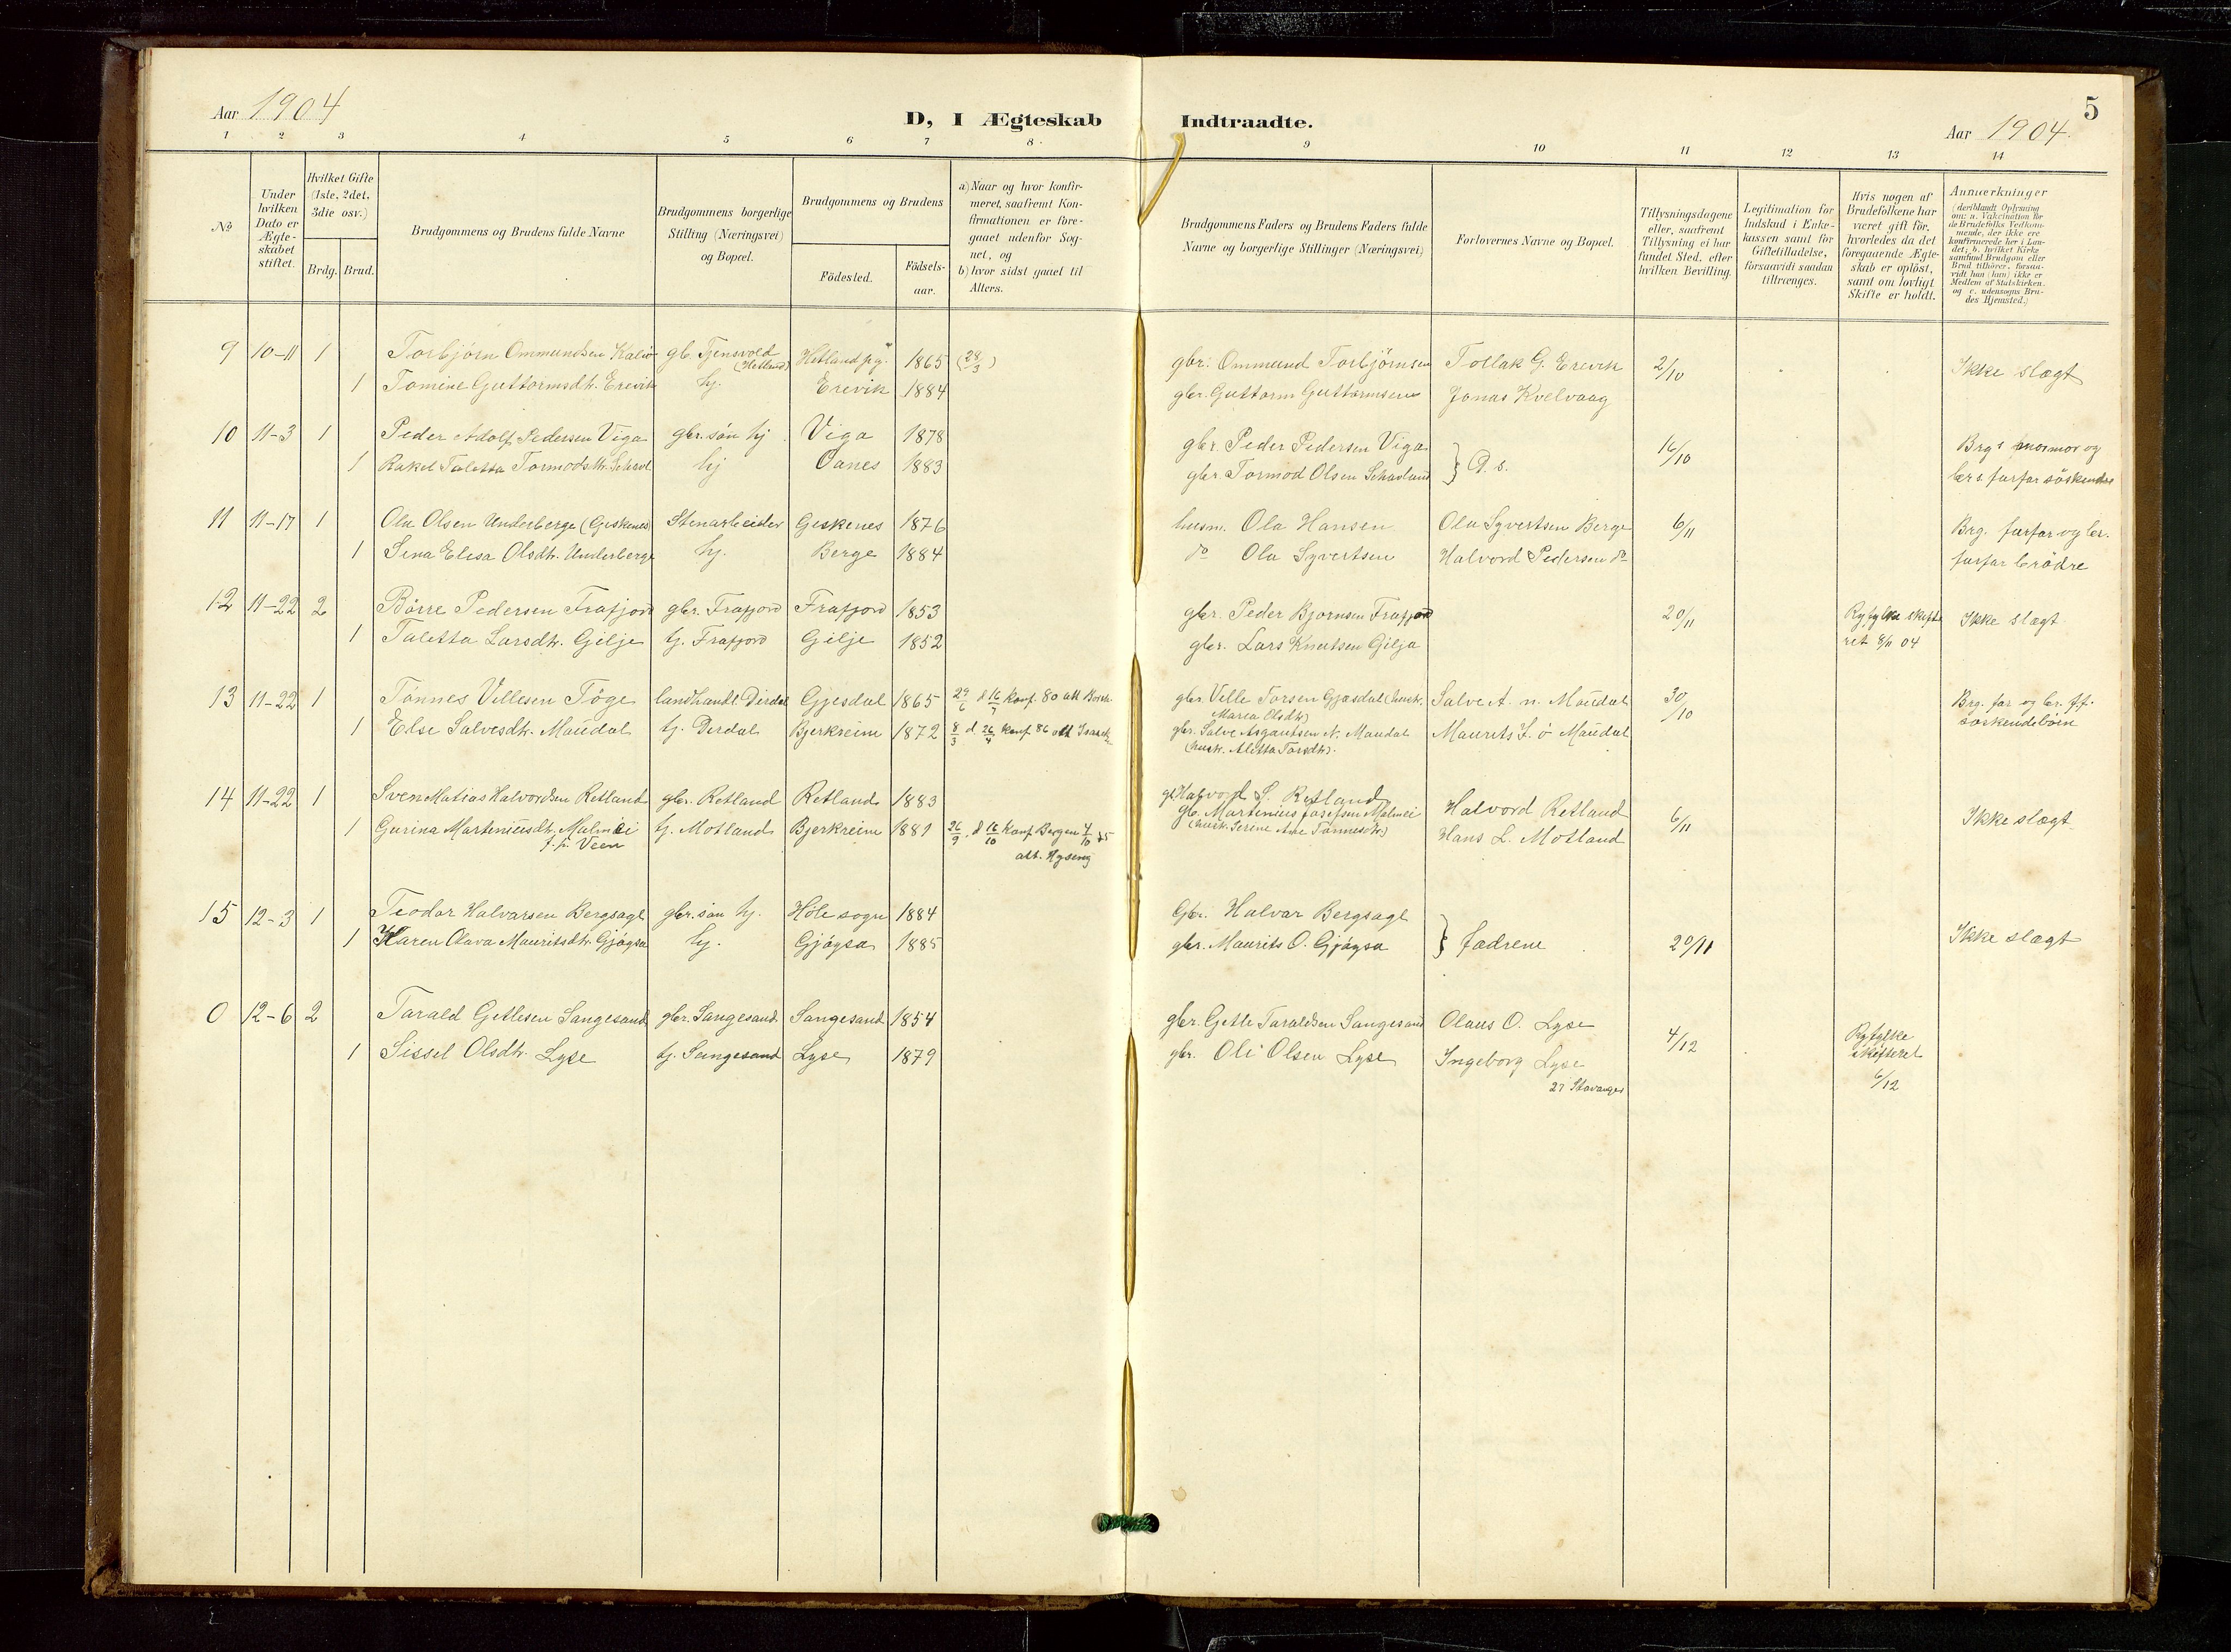 Aar 1904
D, I Ægteskab Indtraadte.
5
Aar 1904.
1 2 3 4 5 6 7 8. 9 10 11 12 13 14
No
Under hvilken Dato er Ægteskabet stiftet.
Hvilket Gifte (1ste, 2det, 3die osv.)
Brdg. Brud.
Brudgommens og Brudens fulde Navne
Brudgommens borgerlige Stilling (Næringsvei) og Bopæl.
Brudgommens og Brudens
Födested.
Födsels-aar.
a) Naar og hvor konfir-
meret, saafremt Kon-
firmationen er fore-
gaaet udenfor Sog-
net, og
b) hvor sidst gaaet til
Alters.
Brudgommens Faders og Brudens Faders fulde
Navne og borgerlige Stillinger (Næringsvei)
Forlovernes Navne og Bopæl.
Tillysningsdagene
eller, saafremt
Tillysning ei har
fundet Sted, efter
hvilken Bevilling.
Legitimation for
Indskud i Enke-
kassen samt for
Giftetilladelse,
forsaavidt saadan
tiltrænges.
Hvis nogen af
Brudefolkene har
været gift för,
hvorledes da det
foregaaende Ægte-
skab er oplöst,
samt om lovligt
Skifte er holdt.
Anmærkninger
(deriblandt Oplysning
om: a. Vakcination for
de Brudefolks Vedkom-
mende, der ikke ere
konfirmerede her i Lan-
det; b. hvilket Kirke-
samfund Brudgom eller
Brud tilhörer, forsaa-
vidt han (hun) ikke er
Medlem af Statskirken,
og c. udensogns Bru-
des Hjemsted.)
9 10-11 1 Torbjörn Ommundsen gb. Tjensvold (Hetland) Hetland pg. 1865 (28/3) gbr. Ommund Torbjörnsen Tollak G. Erevik 2/10 Ikke slægt
1 Tomine Guttormsdtr. Erevik hj. Erevik 1884 gbr. Guttorm Guttormsen Jonas Kvelvaag
10 11-3 1 Peder Adolf Pedersen Viga gbr. sön hj Viga 1878 gbr. Peder Pedersen Viga } D. s. 16/10 Brgs mormor og
1 Rakel Taletta Tormodsdtr. hj Oanes 1883 gbr. Tormod Olsen Schavland brs farfar söskende
11 11-17 1 Ola Olsen Underberge (Geskenes) Stenarbeider Geskenes 1876 husm. Ola Hansen Ola Syvertsen Berge 6/11 Brg. farfar og br.
1 Sina Elisa Olsdtr. Underberge hj. Berge 1884 do Ola Syvertsen Halvord Pedersen do farfar brödre
12 11-22 2 Börre Pedersen Frafjord gbr. Frafjord Frafjord 1853 gbr. Peder Bjornsen Frafjord 20/11 Ryfylke skifte Ikke slægt
1 Taletta Larsdtr. Gilje tj. Frafjord Gilje 1852 gbr. Lars Knutsen Gilja ret 8/11 04
13 11-22 1 Tönnes Villesen Töge landhandl. Dirdal Gjesdal 1865 29/6 d 16/7 konf. 80 att gbr. Ville Torsen Gjæsdal (hustr. Salve A. n. Maudal 30/10 Brg. far og br. f.f.
Marea Olsdtr)
1 Else Salvesdtr. Maudal tj. Derdal Bjerkreim 1872 8/3 d 26/4 konf 86 att gbr. Salve Asgautsen N. Maudal Maurits J. ö Maudal söskendebörn
(hustr. Aletta Torsdtr).
14 11-22 1 Sven Matias Halvordsen Retland gbr. Retland Retland 1883 gb. Halvord S. Retland Halvord Retland 6/11 Ikke slægt
1 Gurina Marteniusdtr. Malmei tj. Motland Bjerkreim 1881 26/9 d 16/10 konf Bergen 4/10 gb. Martenius Josefsen Malmei Hans L. Motland
Veen att. (hustr. Serine Ane Tönnesdtr.)
15 12-3 1 Teodor Halvarsen Bergsagl gbr. sön hj. Höle sogn 1884 Gbr. Halvar Bergsagl } fædrene 20/11 Ikke slægt
1 Karen Olava Mauritsdtr. Gjögsa hj. Gjögsa 1885 gbr. Maurits O. Gjögsa
0 12-6 2 Tarald Getlesen Sangesand gbr. Sangesand Sangesand 1854 gbr. Getle Taraldsen Sangesand Olaus O. Lyse 4/12 Ryfylke
1 Sissel Olsdtr. Lyse tj. Sangesand Lyse 1879 gbr. Oli Olsen Lyse Ingeborg Lyse skifteret
27 Stavanger 6/12